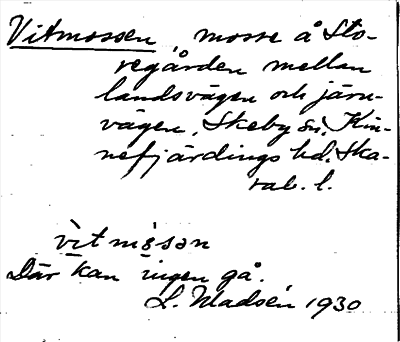 Vitmossen, mosse å Sto-
regården mellan
landsvägen och järn-
vägen, Skeby sn, Kin-
nefjärdings hd, Ska-
rab. l.
vìt mósən
Där kan ingen gå.
L. Madsén 1930